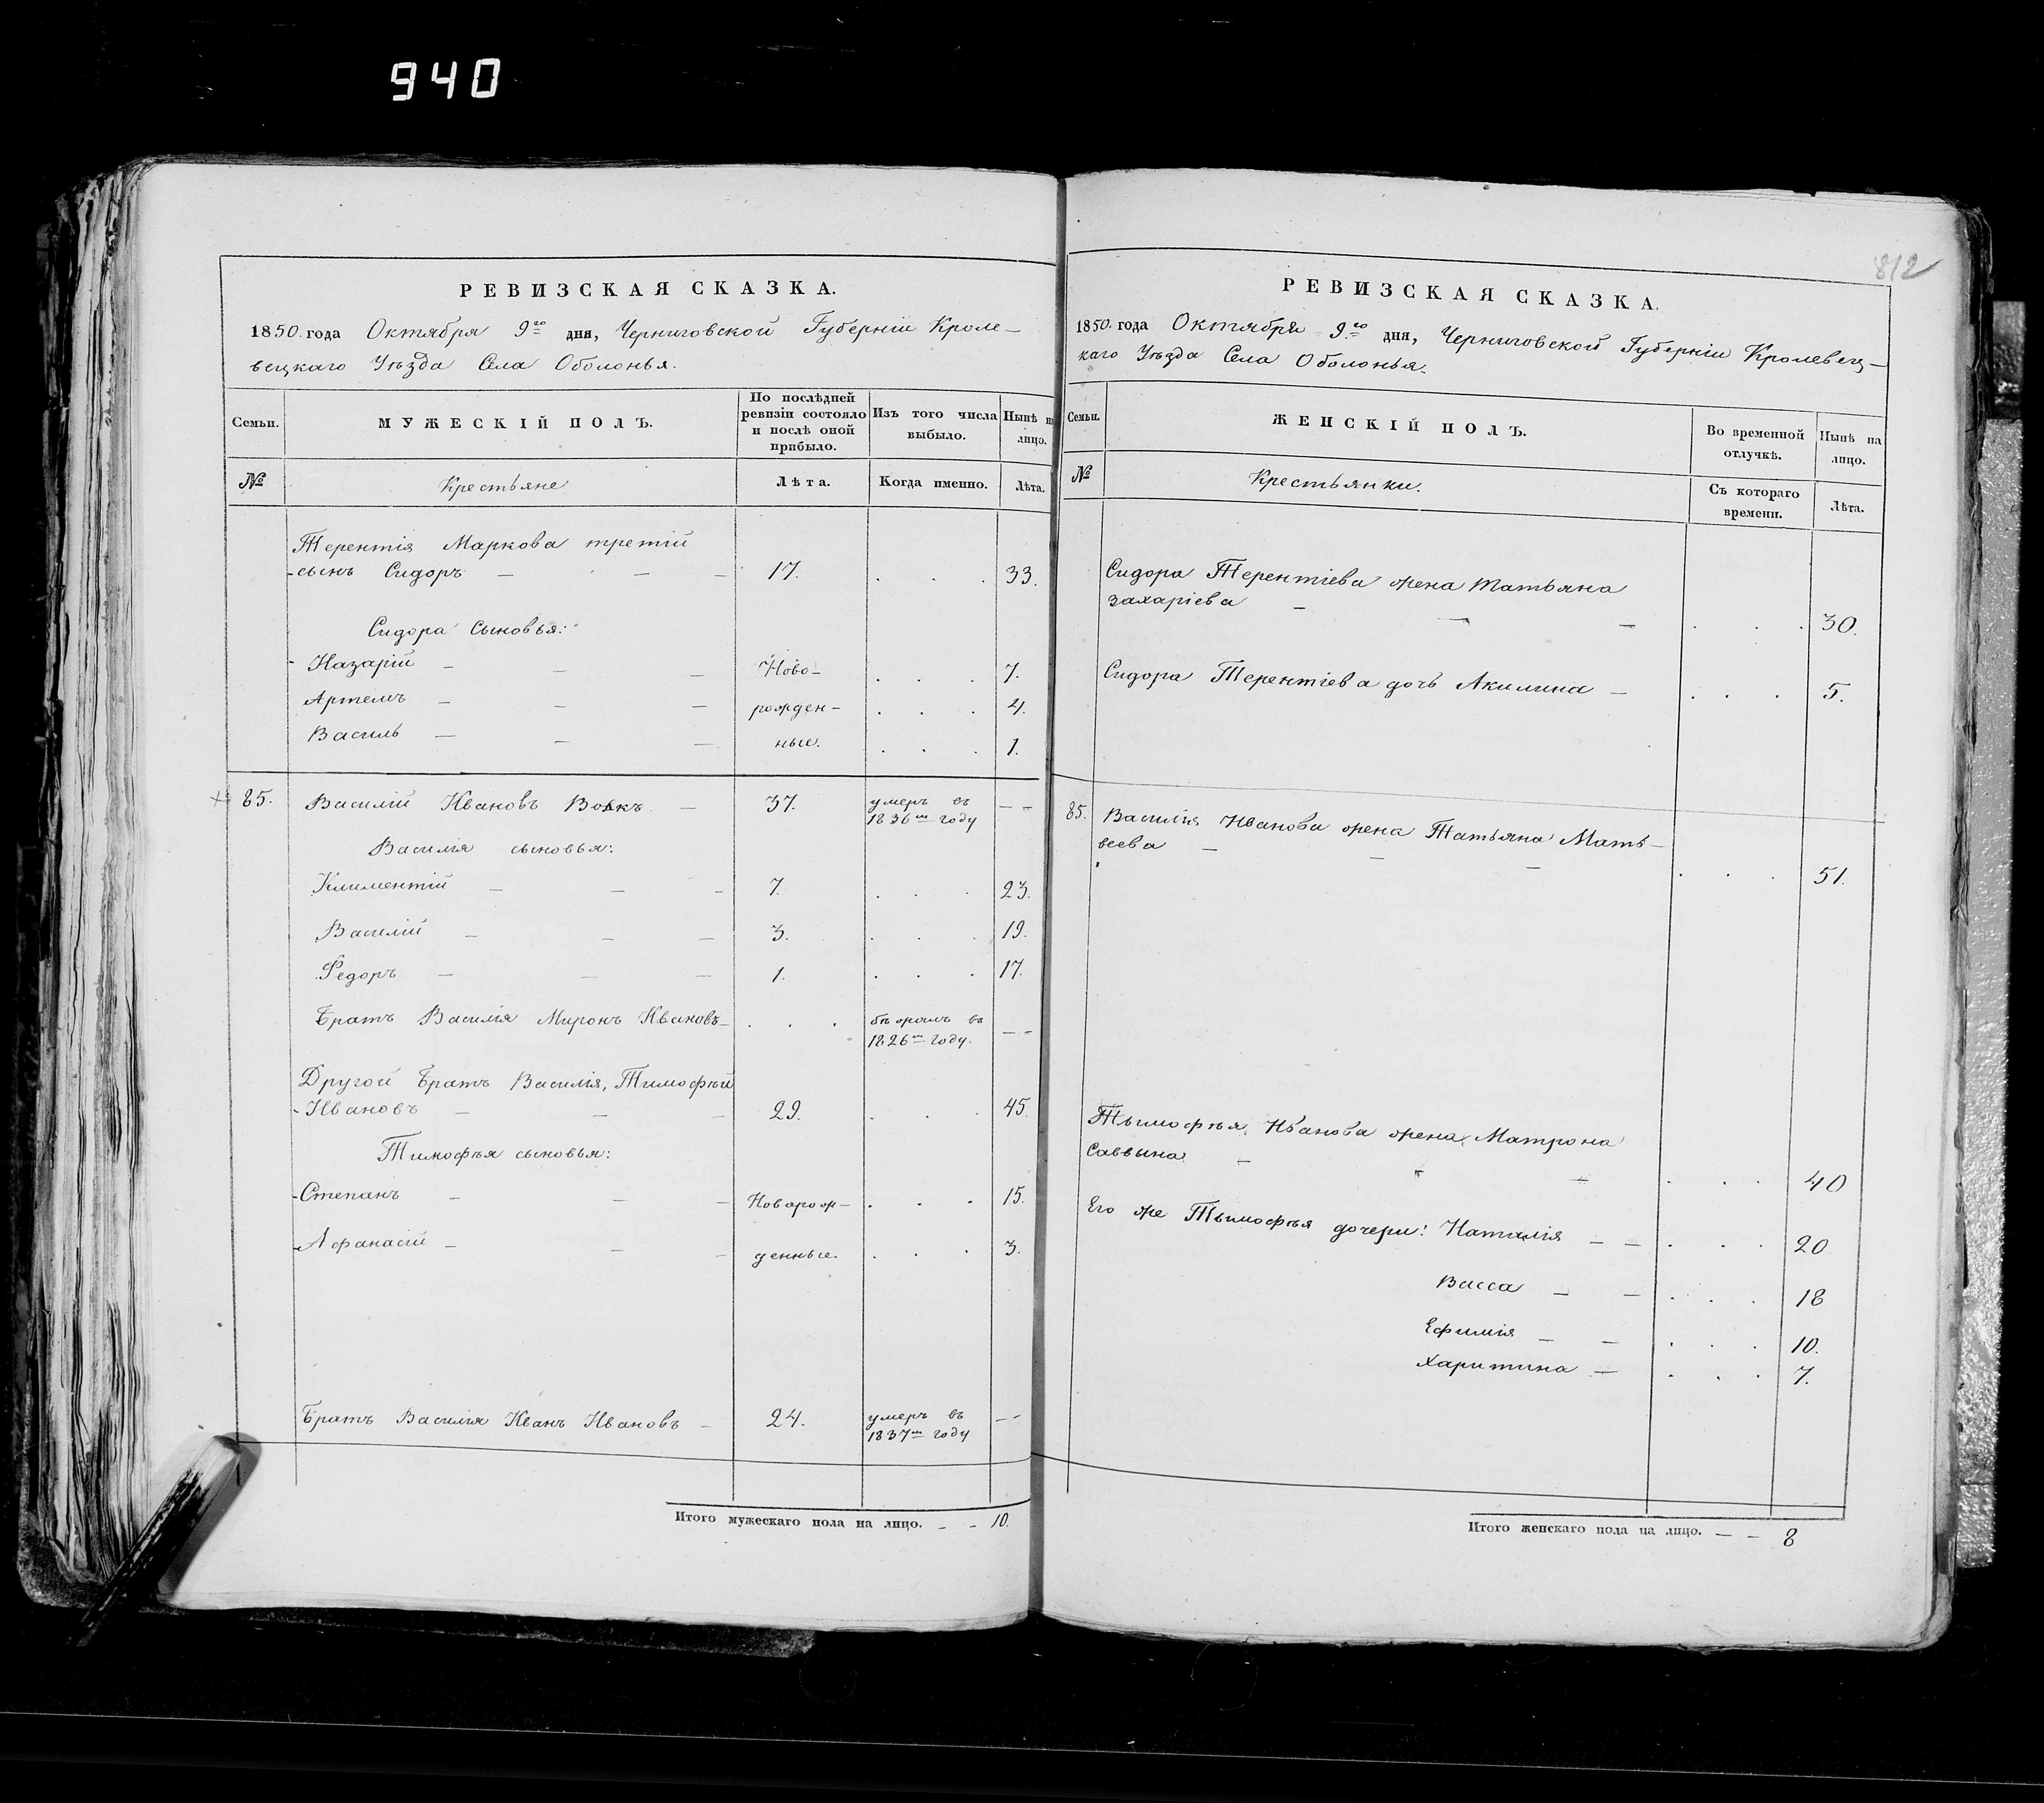 940
РЕВИЗСКАЯ СКАЗКА.
1850. года Октября 9го дня, Черниговской Губерніи Кроле-
вецкаго Уѣзда Села Оболонья.
Семьи.
МУЖЕСКІЙ ПОЛЪ.
По послѣдней ревизіи состояло и послѣ оной прибыло.
Изъ того числа выбыло.
Нынѣ на лицо.
№
Крестьяне
Лѣта.
Когда именно.
Лѣта.
Терентія Маркова третій
-сынъ Сидоръ — — — 17. . . . 33.
Сидора Сыновья:
- Назарій — — — Ново- . . . 7.
Артемъ — — — рожден- . . . 4.
Василь — — — ные. . . . 1.
85. Василій Ивановъ Вовкъ — 37. умеръ въ 1836м году — -
Василія сыновья:
Климентій — — - 7. . . . 23.
Василій — — — 3. . . . 19.
Федоръ — — — 1. . . . 17.
Братъ Василія Миронъ Ивановъ — . . . бѣжалъ въ 1826м году. — -
Другой Братъ Василія, Тимофѣй
- Ивановъ — — — 29. . . . 45.
Тимофѣя сыновья:
-Степанъ — — — Новорож- . . . 15.
-Афанасій — — — денные. . . . 3.
Братъ Василія Иванъ Ивановъ — 24. умеръ въ 1837м году — -
Итого мужескаго пола на лицо. — - 10.
812
РЕВИЗСКАЯ СКАЗКА.
1850. года Октября 9го дня, Черниговской Губерніи Кролевец-
каго Уѣзда Села Оболонья.
Семьи.
ЖЕНСКІЙ ПОЛЪ.
Во временной отлучкѣ.
Нынѣ на лицо.
№
Крестьянки.
Съ котораго времени.
Лѣта.
Сидора Терентіева жена Татьяна
Захаріева — — — . . . 30.
Сидора Терентіева дочь Акилина — . . . 5.
85. Василія Иванова жена Татьяна Мать-
веева — — — . . . 51.
Тымофѣя Иванова жена Матрона
Саввына — — — . . . 40
Его же Тымофѣя дочери: Наталія — — . . . 20
Васса — — . . . 18
Ефимія — — . . . 10.
Харитина — . . . 7.
Итого женскаго пола на лицо. — — 8